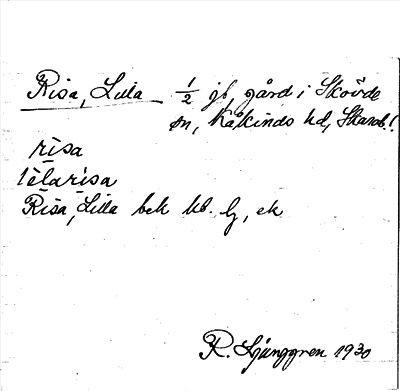 Risa, Lilla 1/2 jb, gård i Skövde
sn, Kåkinds hd, Skarab. l.
rìsa
lèlarìsa
Risa, Lilla bek kb. lj, ek
R. Ljunggren 1930